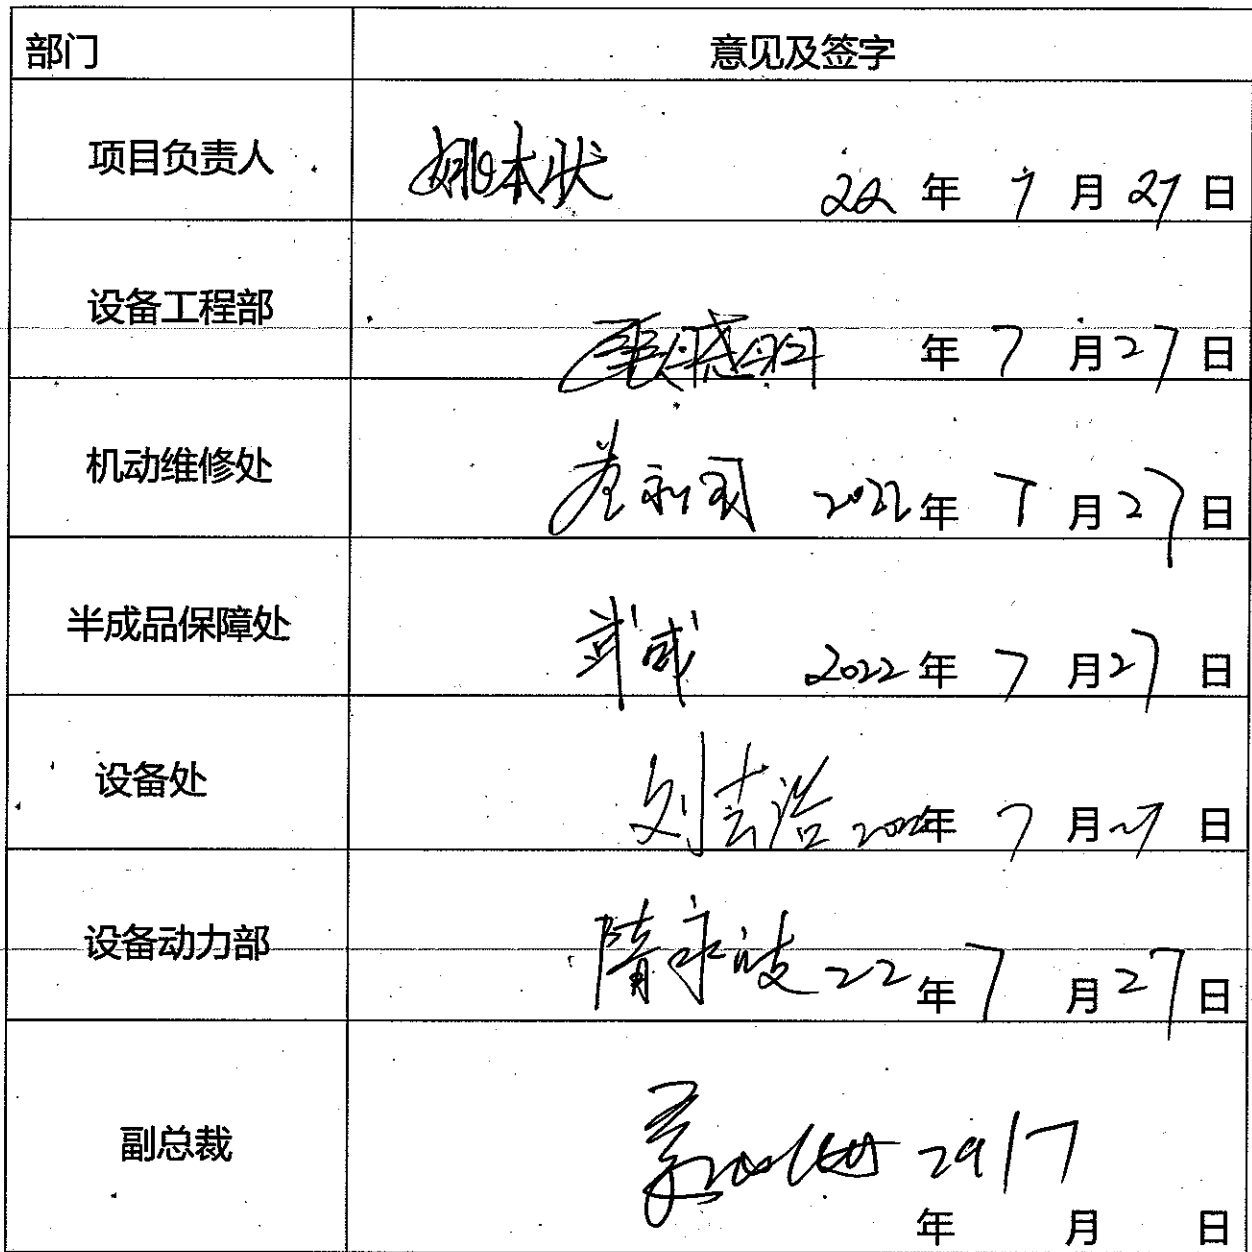 部门 意见及签字
项目负责人 姚本状 22 年 7 月 27 日
设备工程部 年 7 月 27 日
机动维修处 2022 年 7 月 27 日
半成品保障处 武成 2022 年 7 月 27 日
设备处 刘吉治 2022 年 7 月 27 日
设备动力部 隋永波 22 年 7 月 27 日
副总裁 29/7
年 月 日